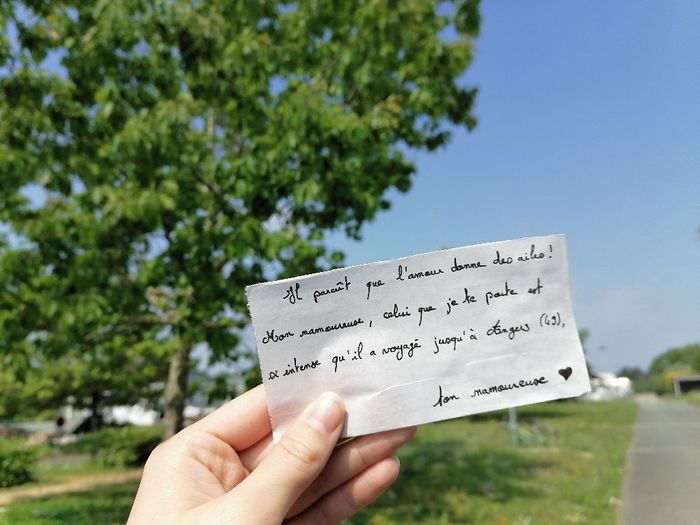 Il paraît que l'amour donne des ailes !
Mon namoureuse, celui que je te porte est
si intense qu'il a voyagé jusqu'à Angers (49),
ton namoureuse ♥